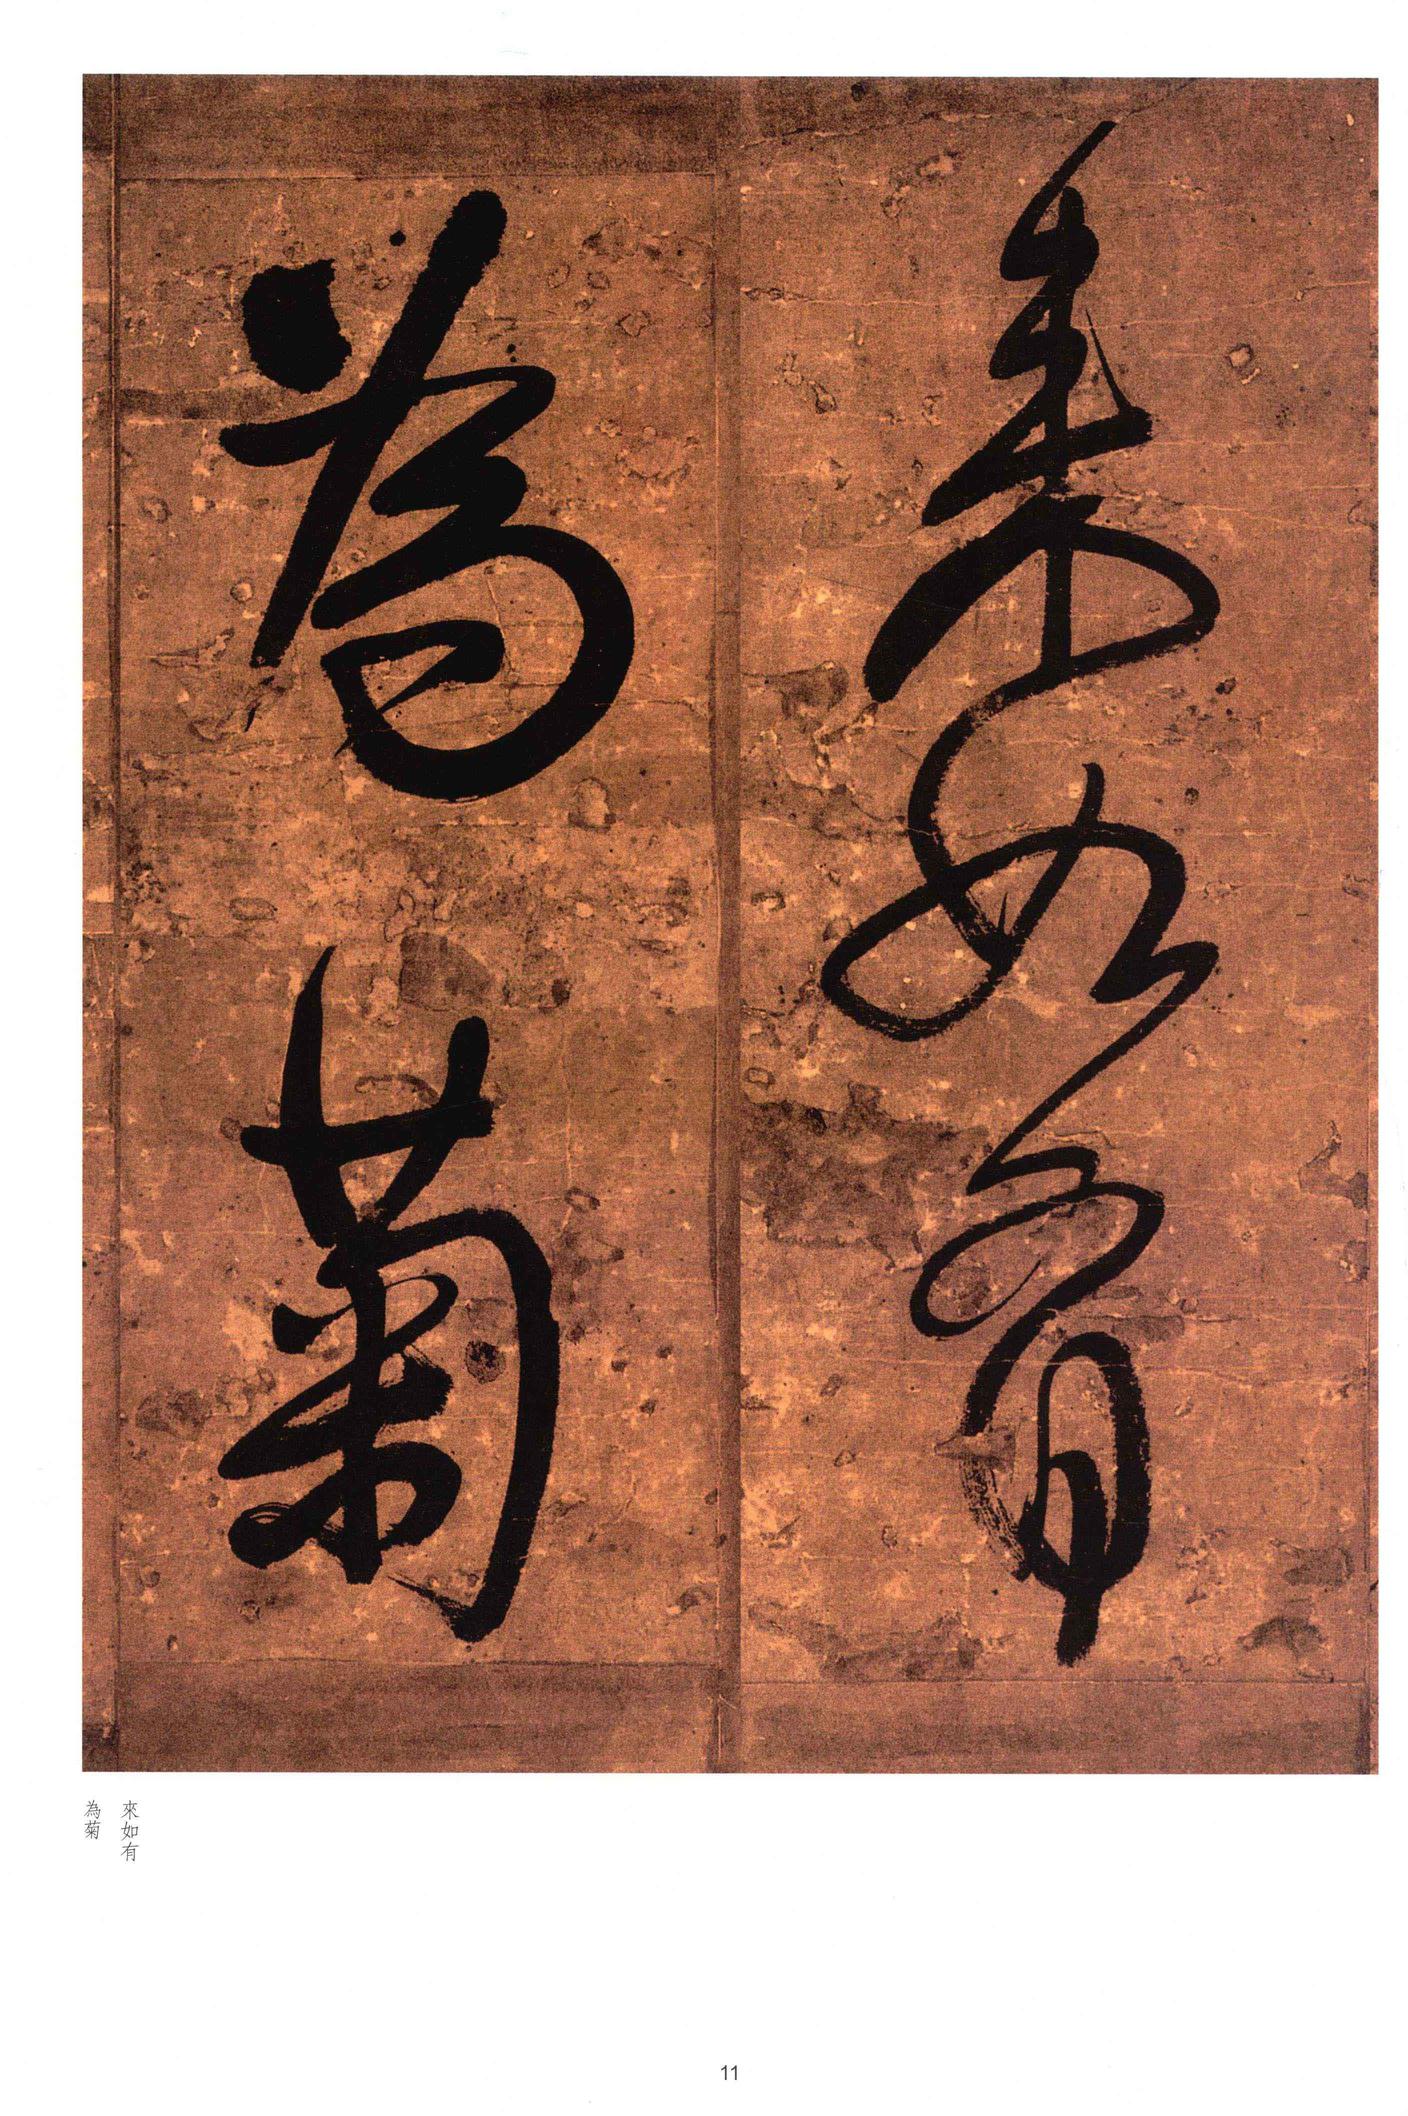 來如有
為菊
來如有
為菊
11